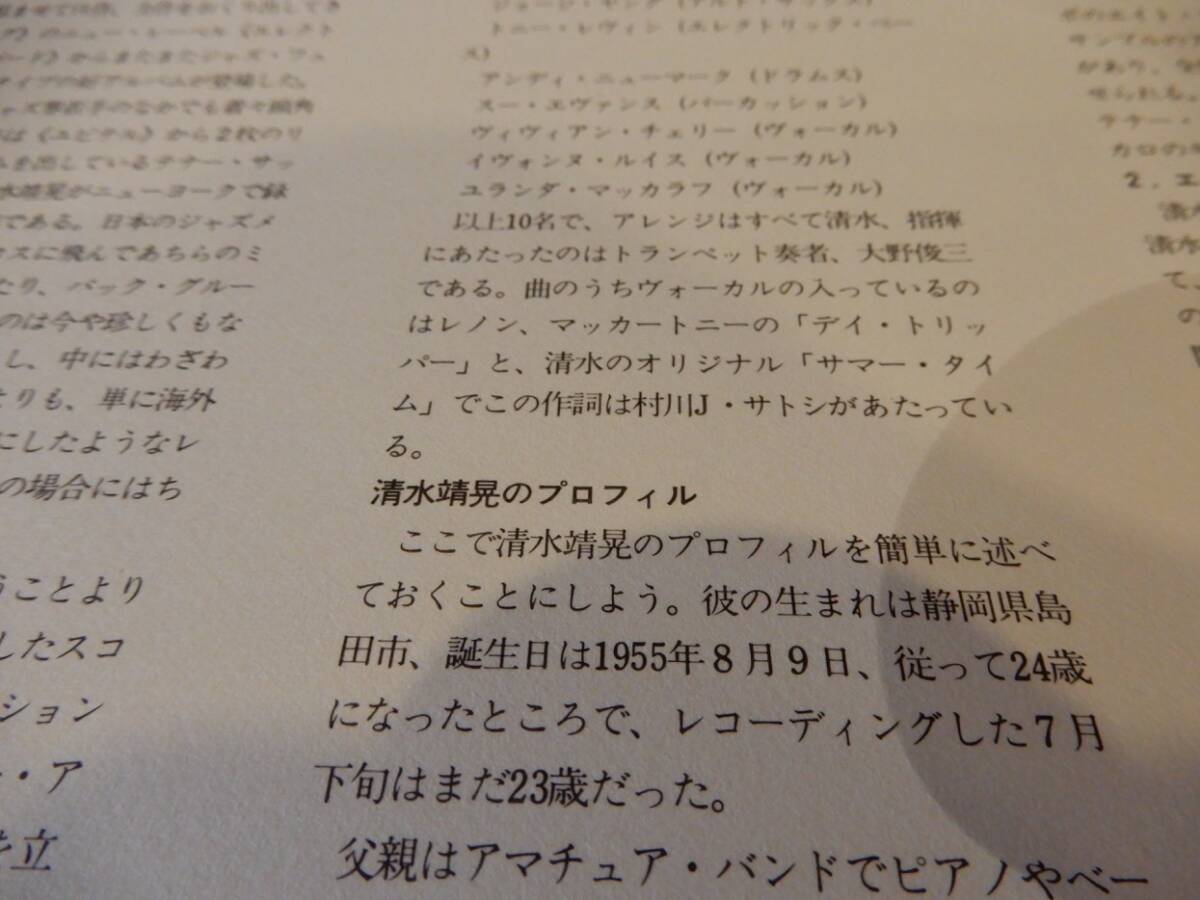 のニュー・レーベル《エレクト
ード》からまたまたジャズ・フュ
タイプの好アルバムが登場した。
ャズ界若手のなかでも着々頭角
は《ユピテル》から2枚のリ
ムを出しているテナー・サッ
水靖晃がニューヨークで録
である。日本のジャズメ
カスに飛んであちらのミ
たり、バック・グルー
のは今や珍しくもな
し、中にはわざわ
よりも、単に海外
にしたようなレ
の場合にはち
うことより
したスコ
ション
・ア
を立
ジョージ・ヤング(アルト・サックス)
トニー・レヴィン(エレクトリック・ベー
ス)
アンディ・ニューマーク(ドラムス)
スー・エヴァンス(パーカッション)
ヴィヴィアン・チェリー(ヴォーカル)
イヴォンヌ・ルイス(ヴォーカル)
ユランダ・マッカラフ(ヴォーカル)
以上10名で、アレンジはすべて清水、指揮
にあたったのはトランペット奏者、大野俊三
である。曲のうちヴォーカルの入っているの
はレノン、マッカートニーの「デイ・トリッ
パー」と、清水のオリジナル「サマー・タイ
ム」でこの作詞は村川J・サトシがあたってい
る。
清水靖晃のプロフィル
ここで清水靖晃のプロフィルを簡単に述べ
ておくことにしよう。彼の生まれは静岡県島
田市、誕生日は1955年8月9日、従って24歳
になったところで、レコーディングした7月
下旬はまだ23歳だった。
父親はアマチュア・バンドでピアノやベー
があり、
せられる。
2. エ
清水
て、
の